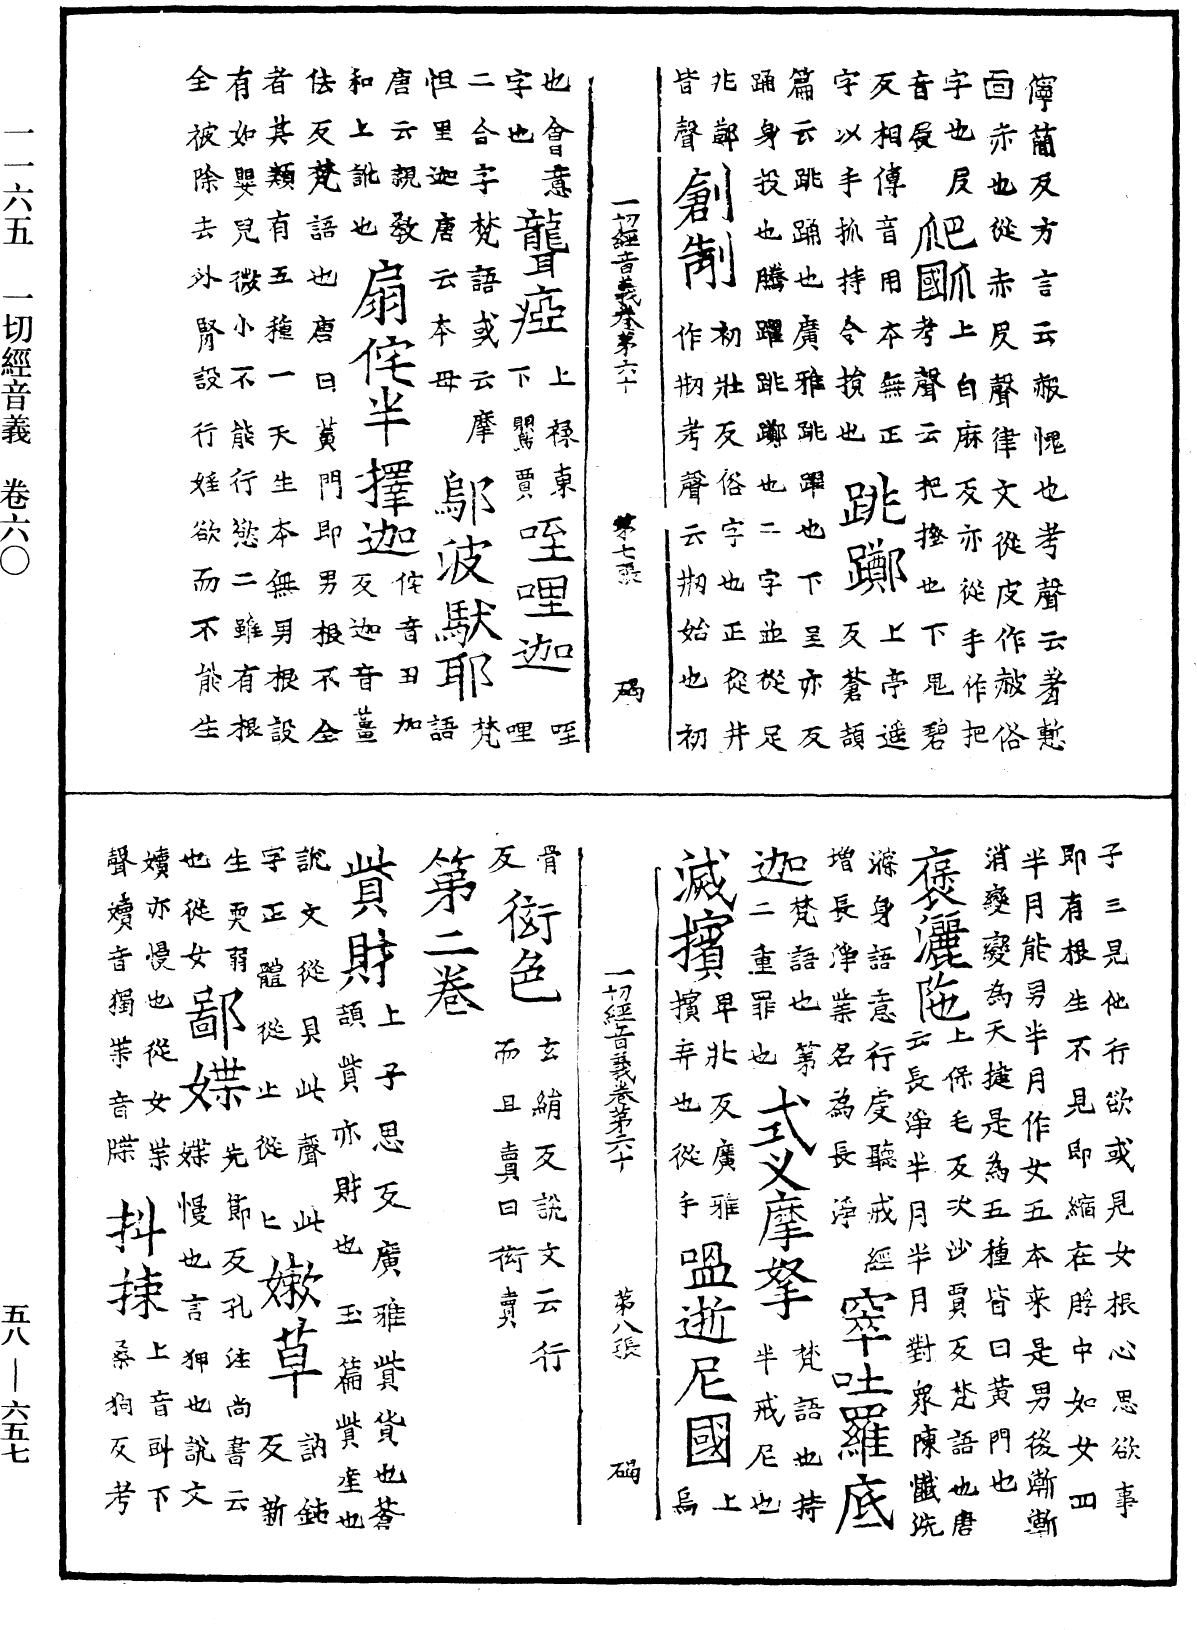 一一六五　一切經音義　卷六〇
儜蕳反方言云赧愧也考聲云羞慙
面赤也從赤㞋聲律文從皮作赧俗
字也㞋　爬爪上白麻反亦從手作把
音展　爬國考聲云把搔也下𠒋碧
反相傳音用本無正　上亭遥
字以手抓持令損也　跳躑　反蒼頡
篇云跳踊也廣雅跳躍也下呈亦反
踊身投也騰躍跳躑也二字並從足
兆鄭　創制　初壯反俗字也正從井
皆聲　作剏考聲云剏始也初
一切經音義卷第六十　第七張　碣
也會意　聾瘂　上祿東　咥哩迦　咥
字也　下鷖賈　哩
二合字梵語或云摩　鄔波馱耶　梵
怛里迦唐云本母　語
唐云親教　扇侘半擇迦　侘音丑加
和上訛也　反迦音薑
佉反梵語也唐曰黃門即男根不全
者其類有五種一天生本無男根設
有如嬰兒微小不能行慾二雖有根
全被除去外腎設行婬欲而不能生
子三見他行欲或見女根心思欲事
即有根生不見即縮在脬中如女四
半月能男半月作女五本来是男後漸漸
消變變為天揵是為五種皆曰黃門也
褒灑陁　上保毛反次沙賈反梵語也唐
云長淨半月半月對眾陳懺洗
滌身語意行虔聽戒經　窣吐羅底
增長淨業名為長淨
迦　梵語也第　式叉摩拏　梵語也持
二重罪也　半戒尼也
滅擯　卑北反廣雅　嗢逝尼國　上
擯弃也從手　烏
一切經音義卷第六十　第八張　碣
骨　衒色　玄絹反說文云行
反　而且賣曰衒賣
第二卷
貲財　上子思反廣雅貲貨也蒼
頡貲亦財也玉篇貲産也
說文從貝此聲此　嫩草　訥鈍
字正體從止從匕　反新
生耎弱　鄙媟　先節反孔注尚書云
也從女　媟慢也言狎也說文
嬻亦慢也從女枼　抖揀　上音㪷下
聲嬻音獨枼音牒　桑狗反考
五八—六五七